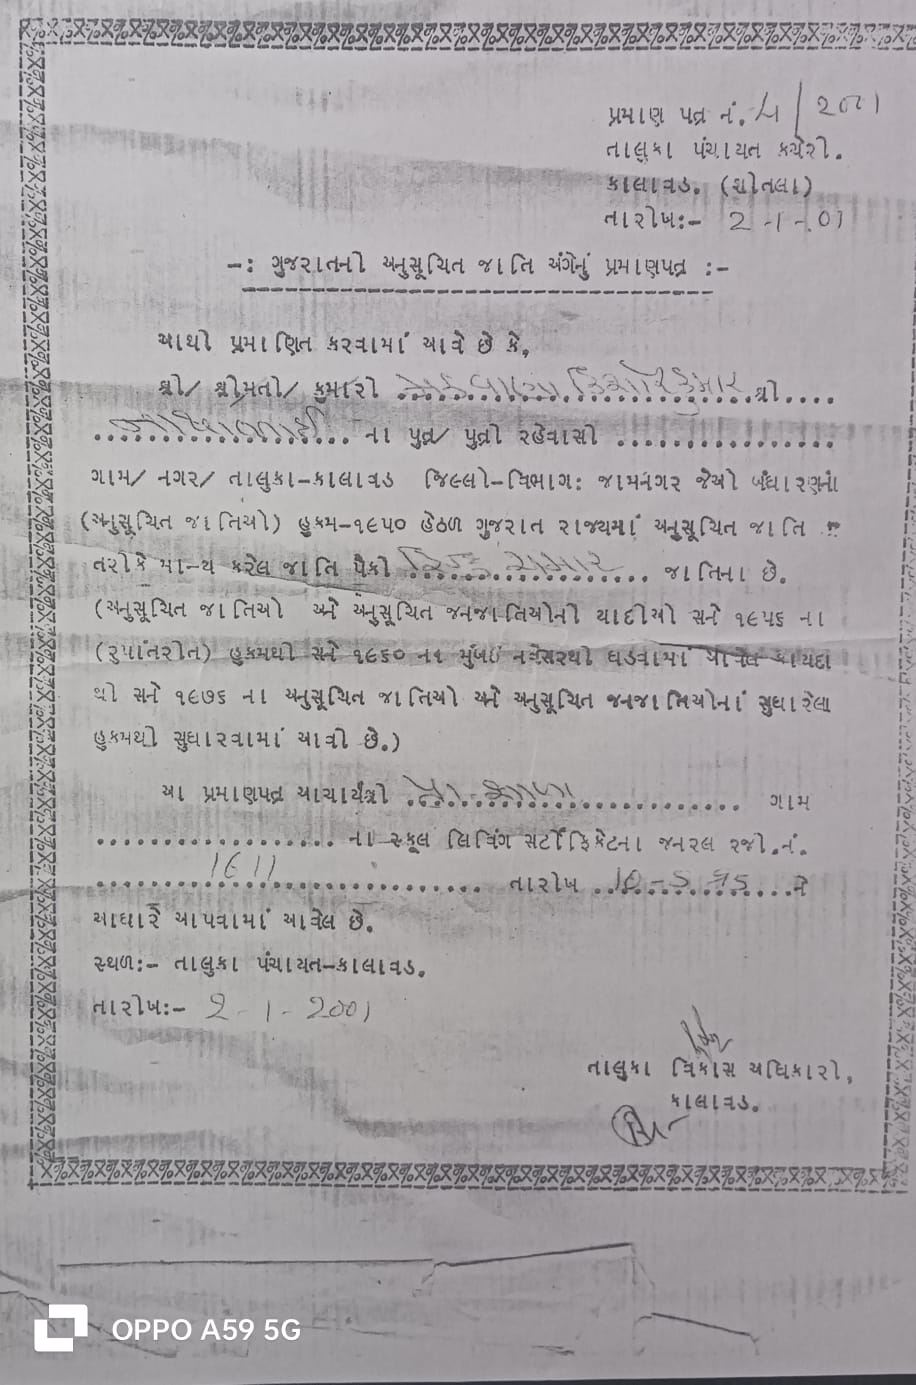 પ્રમાણ પત્ર નં. 4/2001
તાલુકા પંચાયત કચેરી.
કાલાવડ. (શીતલા)
તારીખ:- 2-1-01
-: ગુજરાતની અનુસૂચિત જાતિ અંગેનું પ્રમાણપત્ર :-
આથી પ્રમાણિત કરવામાં આવે છે કે,
શ્રી/ શ્રીમતી/ કુમારી .......... કિશોરકુમાર ..શ્રી....
.................... ના પુત્ર/ પુત્રી રહેવાસી ................
ગામ/ નગર/ તાલુકા-કાલાવડ જિલ્લો-વિભાગ: જામનગર જેઓ બંધારણનાં
(અનુસૂચિત જાતિઓ) હુકમ-૧૯૫૦ હેઠળ ગુજરાત રાજ્યમાં અનુસૂચિત જાતિ
તરીકે માન્ય કરેલ જાતિ પૈકી હિન્દુ ચમાર ... જાતિના છે.
(અનુસૂચિત જાતિઓ અને અનુસૂચિત જનજાતિઓની યાદીઓ સને ૧૯૫૬ ના
(રુપાંતરીત) હુકમથી સને ૧૯૬૦ ના મુંબઇ નવેસરથી ઘડવામાં આવેલ કાયદા
થી સને ૧૯૭૬ ના અનુસૂચિત જાતિઓ અને અનુસૂચિત જનજાતિઓનાં સુધારેલા
હુકમથી સુધારવામાં આવી છે.)
આ પ્રમાણપત્ર આચાર્યશ્રી પ્રા-શાળા .............. ગામ
.................. ના સ્કૂલ લિવિંગ સર્ટીફિકેટના જનરલ રજી.નં.
1611 .................. તારીખ ................ ને
આધારે આપવામાં આવેલ છે.
સ્થળ:- તાલુકા પંચાયત-કાલાવડ.
તારીખ:- 2-1-2001
તાલુકા વિકાસ અધિકારી,
કાલાવડ.
OPPO A59 5G